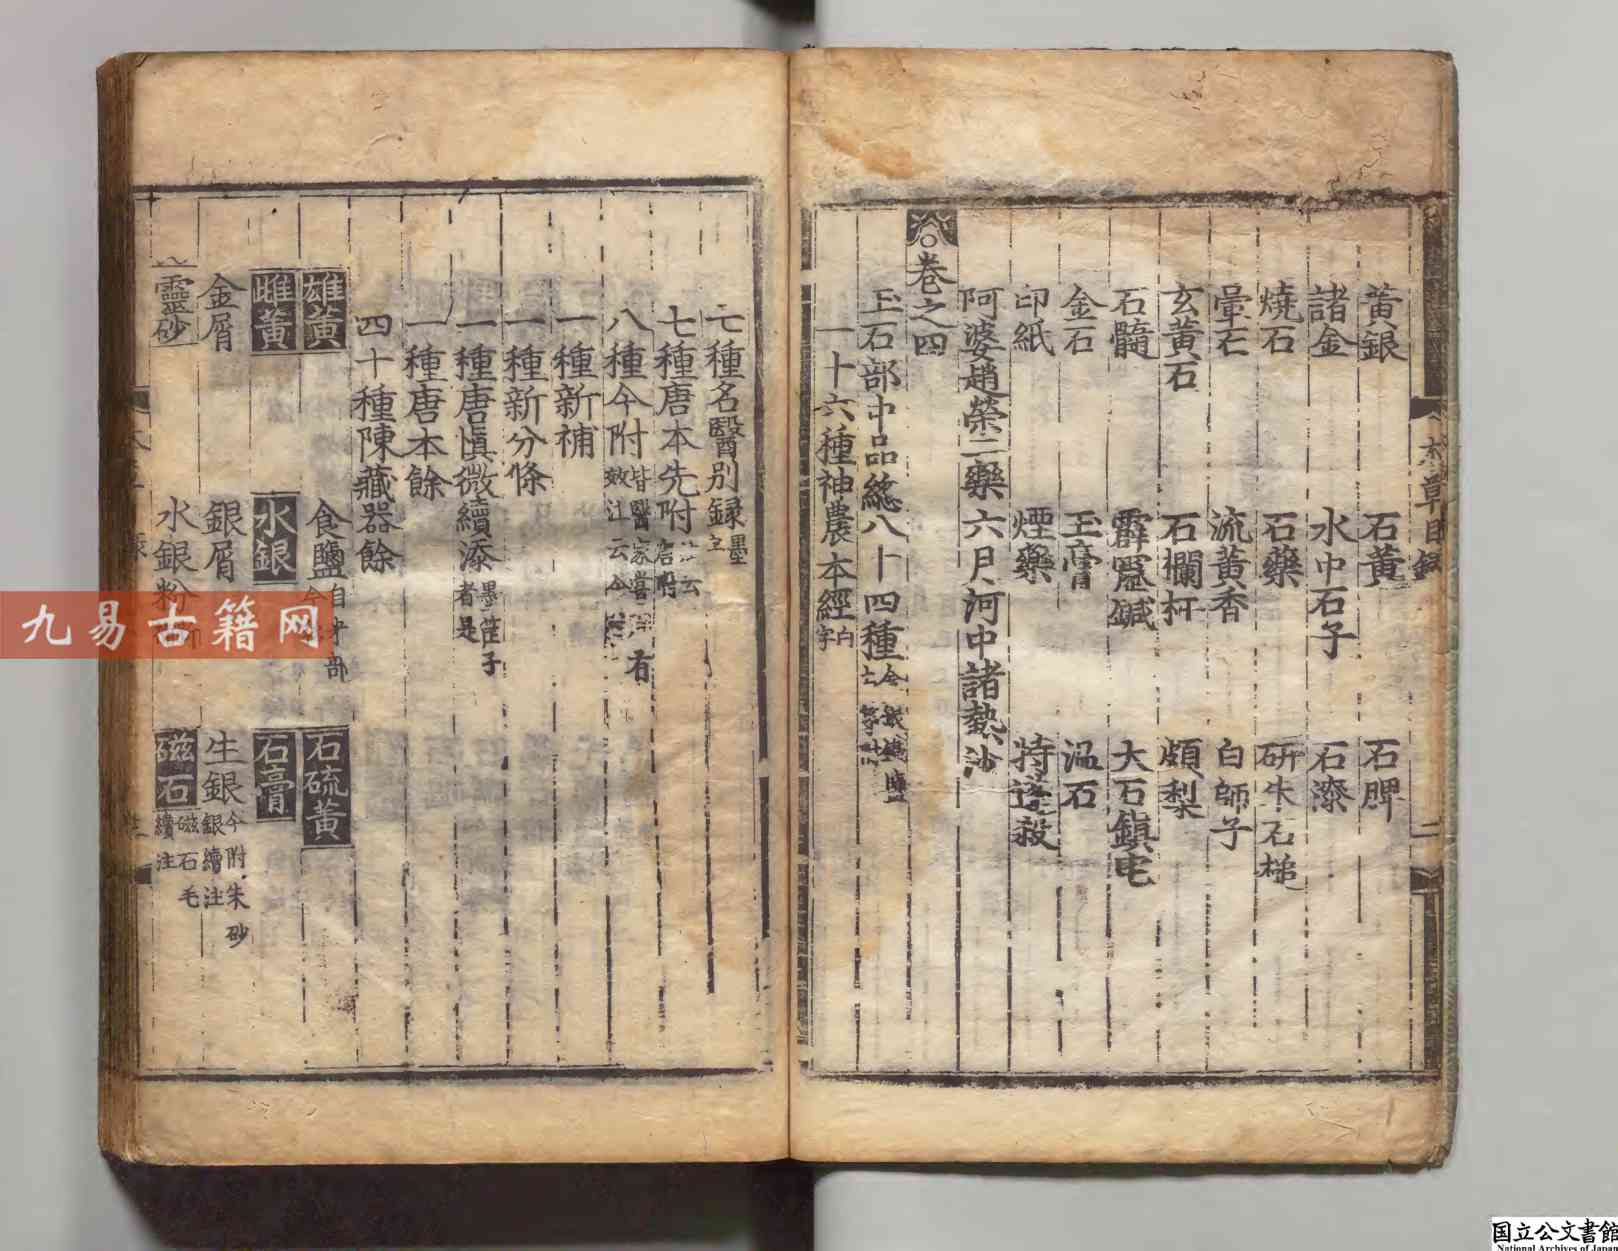 黃銀 石黃 石脾
諸金 水中石子 石漆
燒石 石藥 研朱石槌
暈石 流黃香 白師子
玄黃石 石欄杆 頗梨
石髓 霹靂鍼 大石鎮宅
金石 玉膏 温石
印紙 煙藥 特蓬殺
阿婆趙榮二藥 六月河中諸熱沙
卷之四
玉石部中品總八十四種
一十六種神農本經白字
七種名醫別録墨字
七種唐本先附
八種今附
一種新補
一種新分條
一種唐慎微續添墨筐子者是
一種唐本餘
四十種陳藏器餘
雄黃 食鹽 石硫黃
雌黃 水銀 石膏
金屑 銀屑 生銀今附朱砂銀續注
靈砂 水銀粉 磁石磁石毛續注
九易古籍网
国立公文書館
National Archives of Japan